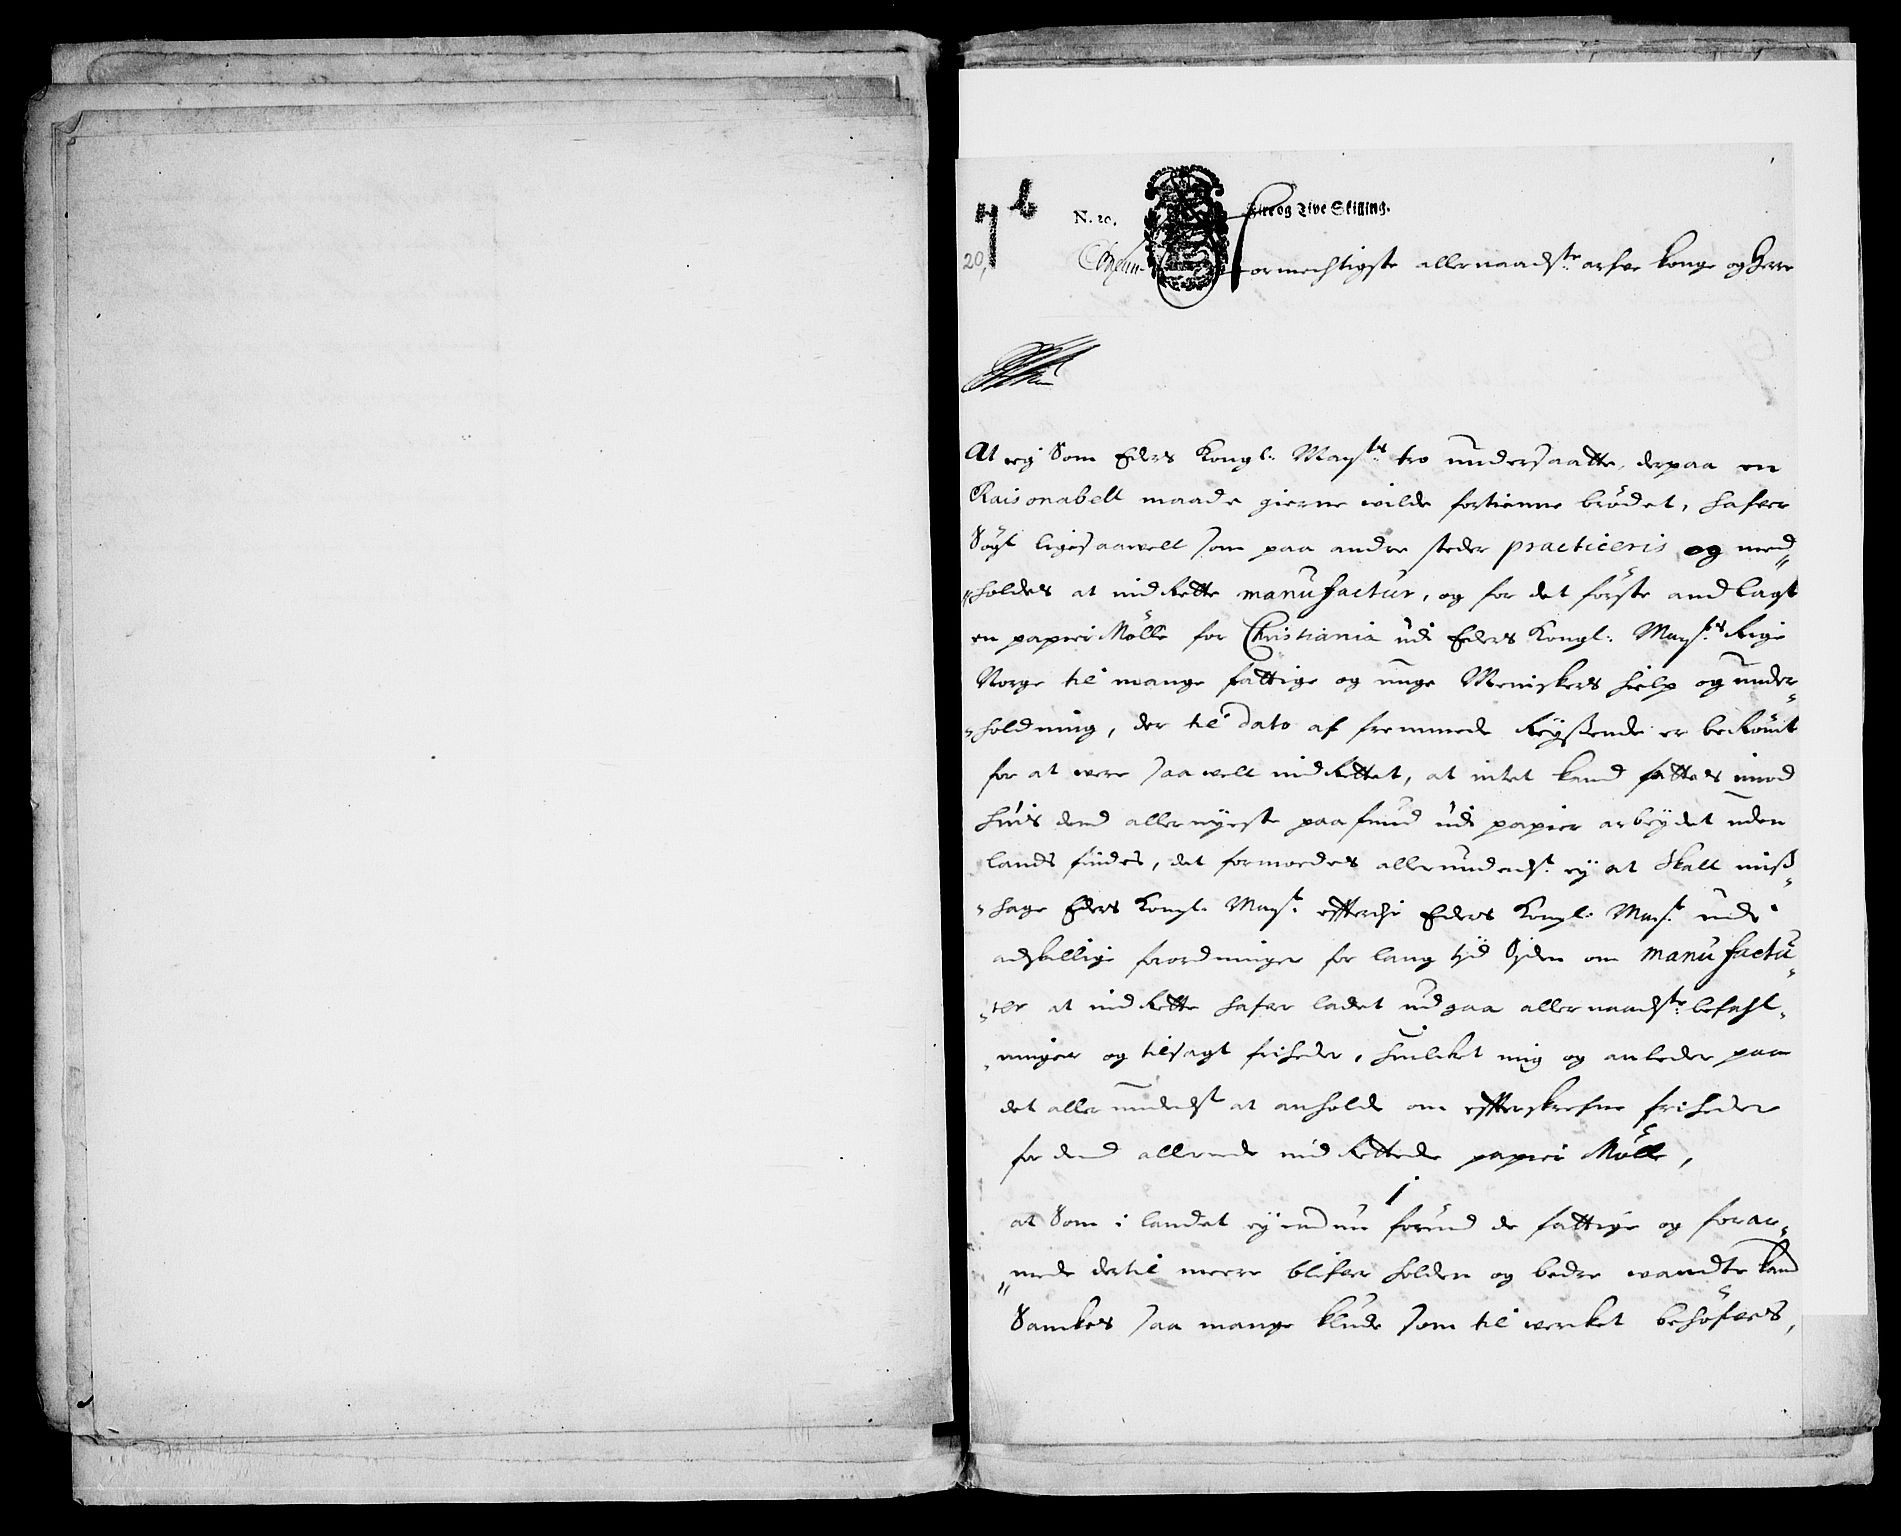 7 b
N. 20. Fire og Tive Skilling.
20,
Stormechtigste allernaadste arfve Konge og Herre
At ieg Som Eders Kongl: Mayts tro undersaatte, der paa en
Raisonabell maade gierne wilde fortienne brödet, hafver
Sögt ligesaawell som paa andre steder practiceris og med„
„holdes at indrette manufactur, og for det förste andlagt
en papier Mölle for Christiania udi Eders Kongl: Mayts Rige
Norge til mange fattige og unge Meniskers hielp og under„
„holdning, der til dato af fremmede Reyssende er berömt
for at were saa well indrettet, at intet kand fattes imod
huis dend allernyeste paafund udi papier arbeydet uden
lands findes, det formoedes allerunderst ey at skall miss„
„hage Eders Kongl. Mayt. efftersom Eders Kongl: Mayt udi
adskillige forordninger for lang tjd siden om manufactu„
„rer at indrette hafver ladet udgaa allernaadste befahl„
„ninger og tilsagt friheder, huilcket mig og anleder paa
det allerunderst at anholde om effterskrefne friheder
for dend allerede indrettede papier Mölle,
1.
at Som i landet ey endnu forend de fattige og forar„
„mede dertil meere blifver holden og bedre wandte kand
Samkes saa mange klude som til werket behöfves,